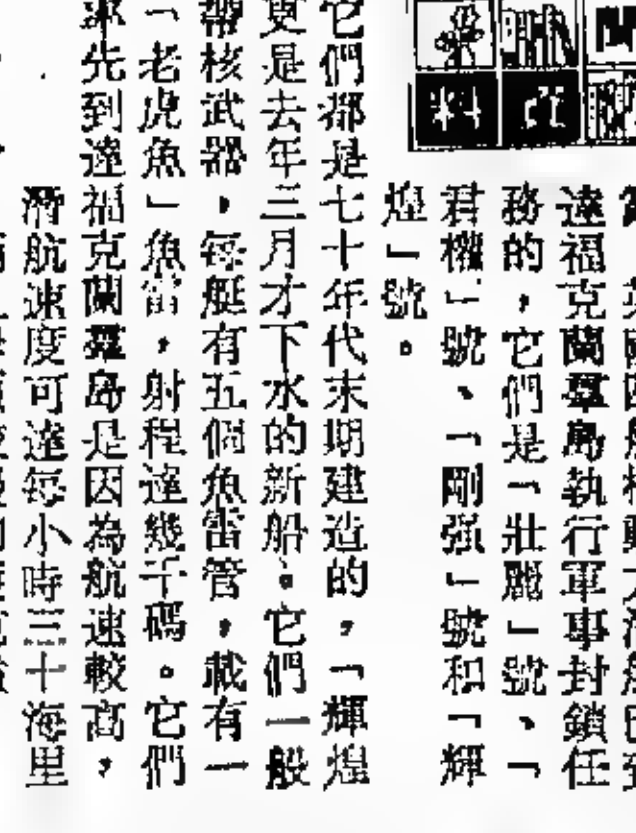 達福克蘭羣島執行軍事封鎖任
務的，它們是「壯麗」號、「
君權」號、「剛强」號和「輝
煌」號。
它們都是七十年代末期建造的，「輝煌
更是去年三月才下水的新船。它們一般
帶核武器，每艇有五個魚雷管，載有一
「老虎魚」魚雷，射程達幾千碼。它們
率先到達福克蘭羣島是因為航速較高，
潛航速度可達每小時三十海里